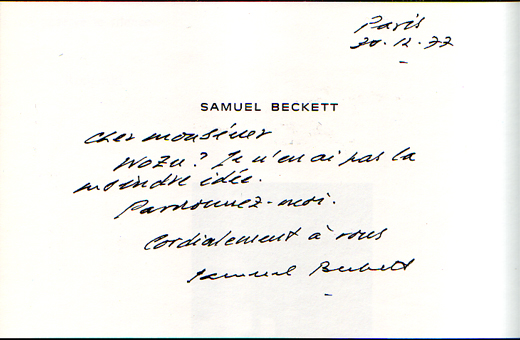 Paris
30.12.77
SAMUEL BECKETT
Cher monsieur
Wozu? Je n'en ai pas la
moindre idée.
Pardonnez-moi.
Cordialement à vous
Samuel Beckett